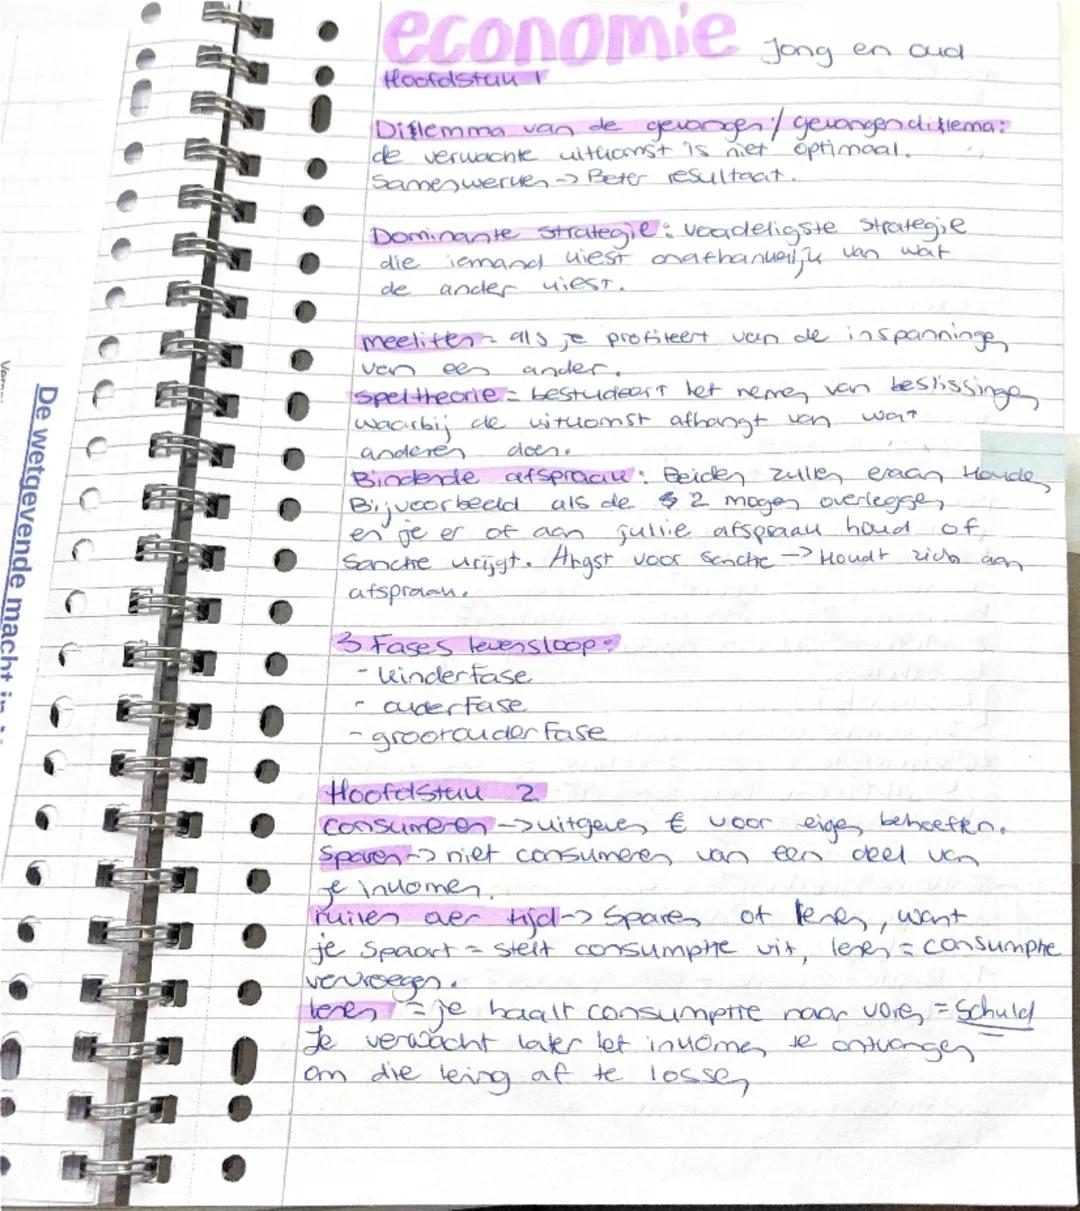 economie Jong en oud
Hoofdstuk 1
Dillemma van de gevangen / gevangendillema:
de verwachte uitkomst is niet optimaal.
Samenwerken -> Beter resultaat.
Dominante strategie: voordeligste strategie
die iemand kiest onafhankelijk van wat
de ander kiest.
meeliften = als je profiteert van de inspanningen
van een ander.
Speltheorie = bestudeert het nemen van beslissingen
waarbij de uitkomst afhangt van wat
anderen doen.
Bindende afspraak: Beiden zullen eraan Houden
Bijvoorbeeld als de 2 mogen overleggen
en je er of aan jullie afspraak houd of
Sanctie krijgt. Angst voor Sanctie -> Houdt zich aan
afspraak.
3 Fases levensloop:
- kinderfase
- ouderfase
- grootouderfase
Hoofdstuk 2
Consumeren -> uitgeven € voor eigen behoeften.
Sparen -> niet consumeren van een deel van
je inkomen.
ruilen over tijd -> Sparen of lenen, want
je Spaart = stelt consumptie uit, lenen = consumptie
vervroegen.
lenen = je haalt consumptie naar voren = Schuld
Je verwacht later let inkomen te ontvangen
om die lening af te lossen
De wetgevende macht in